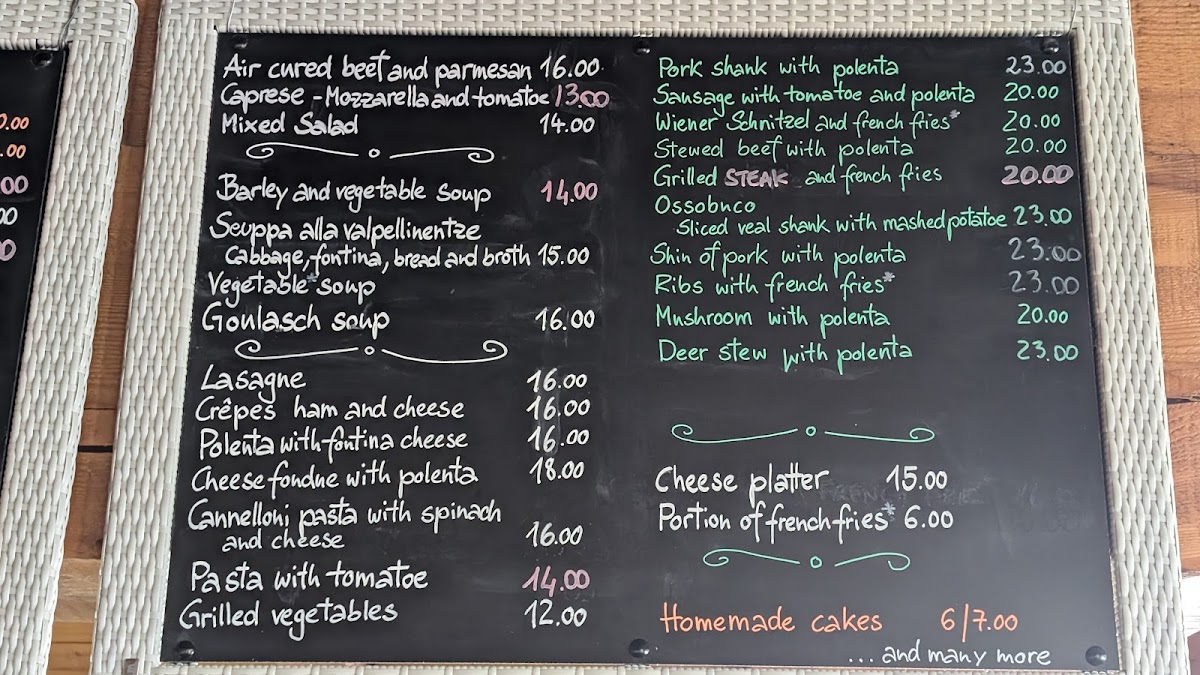 0.00
.00
00
00
0
Air cured beef and parmesan 16.00
Caprese - Mozzarella and tomatoe 13.00
Mixed Salad 14.00
Barley and vegetable soup 14.00
Seuppa alla valpellinentze
Cabbage, fontina, bread and broth 15.00
Vegetable* soup
Goulasch soup 16.00
Lasagne 16.00
Crêpes ham and cheese 16.00
Polenta with fontina cheese 16.00
Cheese fondue with polenta 18.00
Cannelloni pasta with spinach
and cheese 16.00
Pasta with tomatoe 14.00
Grilled vegetables 12.00
Pork shank with polenta 23.00
Sausage with tomatoe and polenta 20.00
Wiener Schnitzel and french fries* 20.00
Stewed beef with polenta 20.00
Grilled STEAK and french fries 20.00
Ossobuco
Sliced veal shank with mashed potatoe 23.00
Shin of pork with polenta 23.00
Ribs with french fries* 23.00
Mushroom with polenta 20.00
Deer stew with polenta 23.00
Cheese platter 15.00
Portion of french fries* 6.00
Homemade cakes 6/7.00
... and many more